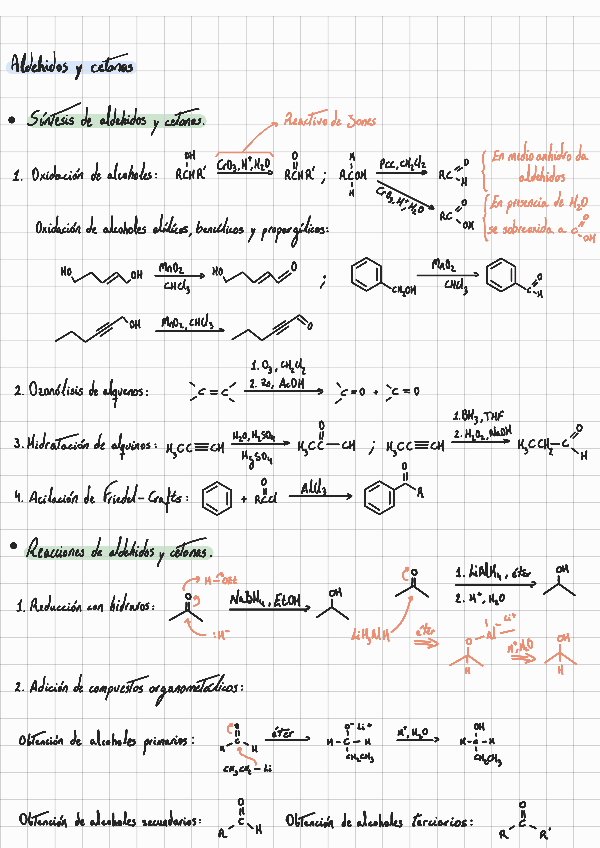 Aldehidos y cetonas
• Síntesis de aldehidos y cetonas.
Reactivo de Jones
1. Oxidación de alcoholes: OH RCHR' CrO3, H+, H2O O RCHR' ; H RCOH H PCC, CH2Cl2 RC O H
En medio anhidro da aldehidos
CrO3, H+, H2O RC O OH
En presencia de H2O se sobreoxida a C O OH
Oxidación de alcoholes alílicos, bencílicos y propargílicos:
HO OH MnO2 CHCl3 HO O ; CH2OH MnO2 CHCl3 C O H
OH MnO2, CHCl3 O
2. Ozonólisis de alquenos: C=C 1. O3, CH2Cl2 2. Zn, AcOH C=O + C=O
3. Hidratación de alquinos: H3CC≡CH H2O, H2SO4 HgSO4 O H3CC-CH ; H3CC≡CH 1. BH3, THF 2. H2O2, NaOH H3CCH2-C O H
4. Acilación de Friedel-Crafts: + O RCCl AlCl3 O C R
• Reacciones de aldehidos y cetonas.
H-OEt
1. Reducción con hidruros: O NaBH4, EtOH OH O 1. LiAlH4, éter 2. H+, H2O OH
:H-
LiH3AlH éter O Al Li+ H H+, H2O OH H
2. Adición de compuestos organometálicos:
Obtención de alcoholes primarios: O H C H éter O- Li+ H-C-H CH2CH3 H+, H2O OH H-C-H CH2CH3
CH3CH2-Li
Obtención de alcoholes secundarios: O R C H Obtención de alcoholes terciarios: O R C R'